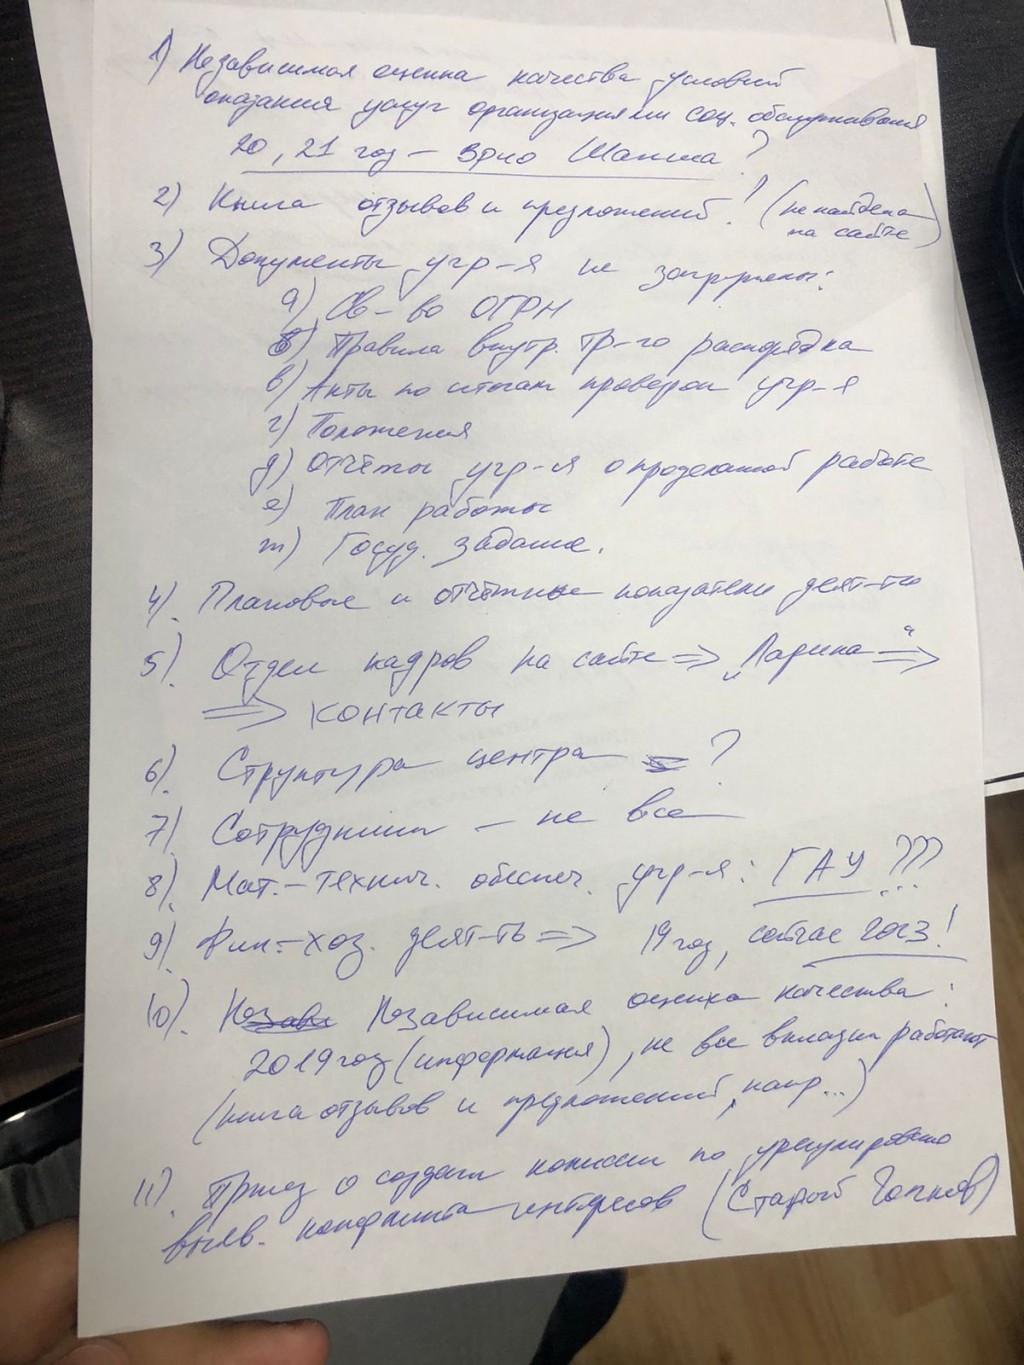 1) Независимая оценка качества условий
оказания услуг организациями соц. обслуживания
20, 21 год – Врио ?
2) Книга отзывов и предложений! (не найдена
на сайте)
3) Документы учр-я не загружены:
а) Св-во ОГРН
б) Правила внутр. тр-го распорядка
в) Акты по итогам проверок учр-я
г) Положения
д) Отчёты учр-я о проделанной работе
е) План работы
ж) Госуд. задание.
4). Плановые и отчётные показатели деят-ти
5). Отдел кадров на сайте ⇒ „Ларина“ ⇒
⇒ контакты
6). Структура центра ?
7). Сотрудники – не все
8). Мат.-технич. обеспеч. учр-я: ГАУ ???
9). Фин-хоз. деят-ть ⇒ 19 год, сейчас !
10). Независимая оценка качества:
2019 год (информация), не все вкладки работают
(книга отзывов и предложений, напр...)
11). Приказ о создании комиссии по
выяв. конфликта интересов (Старый)